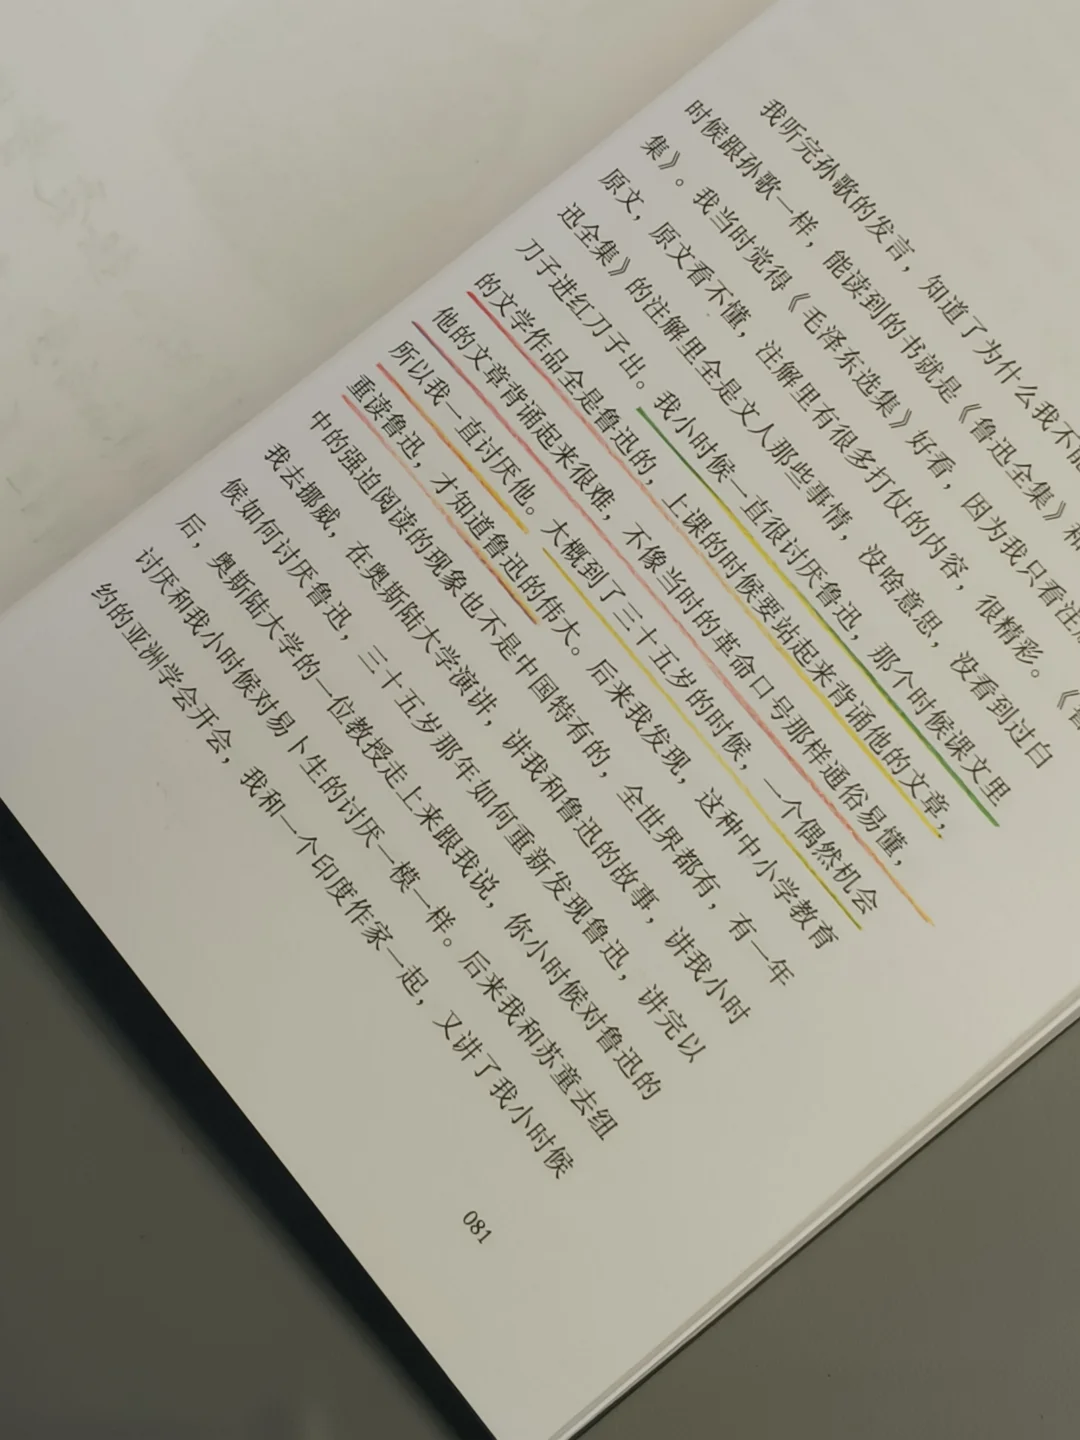 我听完孙歌的发言，知道了为什么我不能
时候跟孙歌一样，能读到的书就是《鲁迅全集》和
集》。我当时觉得《毛泽东选集》好看，因为我只看注
原文，原文看不懂，注解里有很多打仗的内容，很精彩。《鲁
迅全集》的注解里全是文人那些事情，没啥意思，没看到过白
刀子进红刀子出。我小时候一直很讨厌鲁迅，那个时候课文里
的文学作品全是鲁迅的，上课的时候要站起来背诵他的文章，
他的文章背诵起来很难，不像当时的革命口号那样通俗易懂，
所以我一直讨厌他。大概到了三十五岁的时候，一个偶然机会
重读鲁迅，才知道鲁迅的伟大。后来我发现，这种中小学教育
中的强迫阅读的现象也不是中国特有的，全世界都有，有一年
我去挪威，在奥斯陆大学演讲，讲我和鲁迅的故事，讲我小时
候如何讨厌鲁迅，三十五岁那年如何重新发现鲁迅，讲完以
后，奥斯陆大学的一位教授走上来跟我说，你小时候对鲁迅的
讨厌和我小时候对易卜生的讨厌一模一样。后来我和苏童去纽
约的亚洲学会开会，我和一个印度作家一起，又讲了我小时候
081